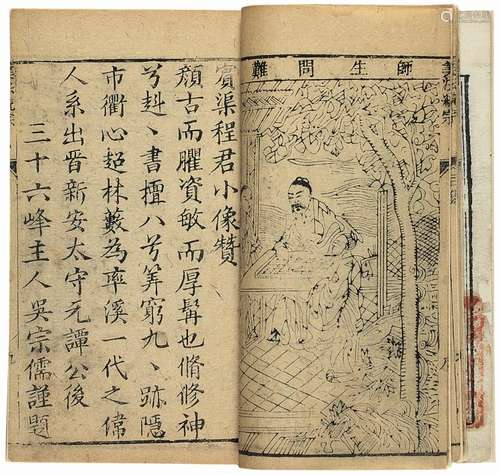 師生問難
賓渠程君小像贊
顏古而臞資敏而厚髯也脩修神
兮赳丶書擅八兮筭窮九丶跡隱
市衢心超林藪為率溪一代之偉
人系出晉新安太守元譚公後
三十六峰主人吳宗儒謹題